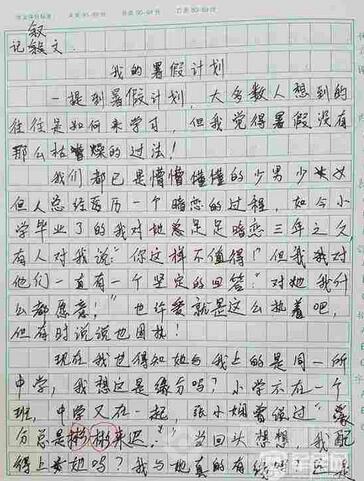 叙
记叙文.
我的暑假计划
一提到暑假计划，大多数人想到的
往往是如何来学习，但我觉得暑假没有
那么枯燥的过法！
我们都已是懵懵懂懂的少男少女
但人总经历一个暗恋的过程，如今小
学毕业了的我对她足足暗恋三年之久
有人对我说："你这样不值得！"但我对
他们一直有一个坚定的回答："对她我什
么都愿意！"也许爱就是这么执着吧，
但有时说说也固执！
现在我也得知她与我上的是同一所
中学，我想这是缘分吗？小学不在一个
班，中学又在一起 张小娴曾说过"缘
分总是姗姗来迟."当回头想想，我配
得上她吗？我与她真的有